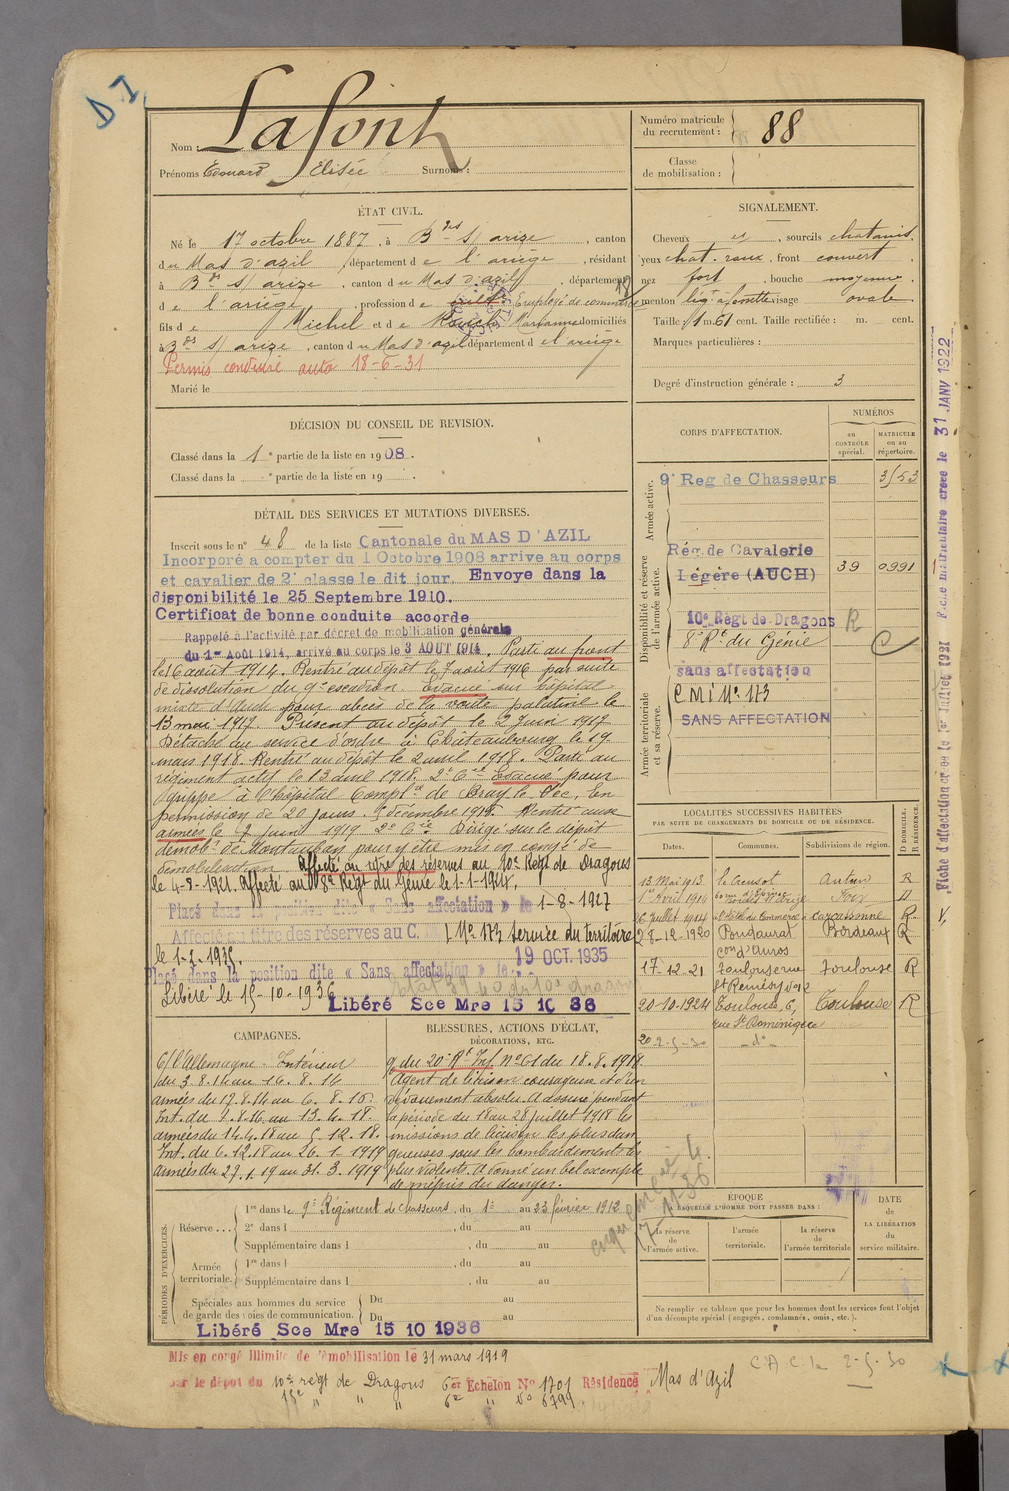 D I
Nom : Lafont
Prénoms Edouard Elisée Surnoms :
Numéro matricule du recrutement : 88
Classe de mobilisation :
ÉTAT CIVIL.
Né le 17 octobre 1887, à B des s/ arize, canton
du Mas d'azil, département de l'ariège, résidant
à B des s/ arize, canton du Mas d'azil, département
de l'ariège, profession de Employé de commerce
fils de Michel et de Marianne domiciliés
à B des s/ arize, canton du Mas d'azil département de l'ariège
Permis conduire auto 18-6-31
Marié le
SIGNALEMENT.
Cheveux et sourcils chatains,
yeux chat. roux, front couvert
nez fort, bouche moyenne,
menton visage ovale
Taille : 1 m. 61 cent. Taille rectifiée : m. cent.
Marques particulières :
Degré d'instruction générale : 3
DÉCISION DU CONSEIL DE REVISION.
Classé dans la 1e partie de la liste en 1908.
Classé dans la e partie de la liste en 19 .
DÉTAIL DES SERVICES ET MUTATIONS DIVERSES.
Inscrit sous le n° 48 de la liste Cantonale du MAS D'AZIL
Incorporé a compter du 1 Octobre 1908 arrive au corps
et cavalier de 2e classe le dit jour. Envoye dans la
disponibilité le 25 Septembre 1910.
Certificat de bonne conduite accorde
Rappelé à l'activité par décret de mobilisation générale
du 1er Août 1914, arrivé au corps le 3 AOUT 1914. Parti au front
le 16 aout 1914. Rentré au dépôt le 7 aout 1916 par suite
de dissolution du 9e escadron. Evacué sur hôpital
mixte d'Auch pour abcès de la voute palatine le
13 mai 1917. Présent au dépôt le 2 Juin 1917
Détaché au service d'ordre à Châteaubourg le 19
mars 1918. Rentré au dépôt le 2 avril 1918. Parti au
régiment actif le 13 avril 1918. 2e Cie Evacué pour
grippe à l'hôpital Complre de Bray le Sec. En
permission de 20 jours. 5 décembre 1918. Rentré aux
armées le 7 Juin 1919 2e Cie. Dirigé sur le dépôt
démobr de Montauban pour y être mis en congé de
démobilisation. Affecté au titre des réserves au 10e Regt de Dragons
le 4-8-1921. Affecté au 8e Régt du Génie le 1-1-1924.
Placé dans la position dite « Sans affectation » le 1-8-1927
Affecté au titre des réserves au C. M I No 173 Service du territoire
le 1-2-1935.
Placé dans la position dite « Sans affectation » le 19 OCT. 1935
Libéré le 15-10-1936 Libéré Sce Mre 15 10 36
CORPS D'AFFECTATION.
NUMÉROS
au CONTRÔLE spécial.
MATRICULE ou au répertoire.
Armée active.
9e Reg de Chasseurs 3153
Disponibilité et réserve de l'armée active.
Rég. de Cavalerie
Légère (AUCH) 39 0991
10e Régt de Dragons R
8e Rt du Génie
sans affectation
Armée territoriale et sa réserve.
C M I No 173
SANS AFFECTATION
LOCALITÉS SUCCESSIVES HABITÉES
PAR SUITE DE CHANGEMENTS DE DOMICILE OU DE RÉSIDENCE.
Dates. Communes. Subdivisions de région. D DOMICILE. R RÉSIDENCE.
13 Mai 1913 le Creusot Autun R
1er Avril 1914 Foix D
6 Juillet 1914 carcassonne R
28-12-1920 Poudaurat Bordeaux R
con d'Auros
17-12-21 Toulouse rue Toulouse R
St Remésy
20-10-1924 Toulouse, 6, Toulouse R
rue St Dominique
2-5-30 -do-
CAMPAGNES.
C/ l'Allemagne - Intérieur
du 3.8.14 au 16.8.14
armées du 17.8.14 au 6.8.16.
Int. du 7.8.16 au 13.4.18.
armées du 14.4.18 au 5.12.18.
Int. du 6.12.18 au 26.1.1919
armées du 27.1.19 au 31.3.1919
BLESSURES, ACTIONS D'ÉCLAT,
DÉCORATIONS, ETC.
O. du 20e Rt Inf. No 61 du 18.8.1918.
Agent de liaison courageux et d'un
dévouement absolu. A assuré pendant
la période du 18 au 28 juillet 1918 les
missions de liaison les plus dan
gereuses sous les bombardements les
plus violents. A donné un bel exemple
de mépris du danger.
PÉRIODES D'EXERCICES.
Réserve ...
1re dans le 9e Régiment de chasseurs, du 1er au 23 février 1912
2e dans l , du au
Supplémentaire dans l , du au
Armée territoriale.
1re dans l , du au
Supplémentaire dans l , du au
Spéciales aux hommes du service de garde des voies de communication.
Du au
Du au
Libéré Sce Mre 15 10 1936
ÉPOQUE
À LAQUELLE L'HOMME DOIT PASSER DANS :
la réserve de l'armée active.
l'armée territoriale.
la réserve de l'armée territoriale
DATE DE LA LIBÉRATION du service militaire.
Ne remplir ce tableau que pour les hommes dont les services font l'objet
d'un décompte spécial (engagés, condamnés, omis, etc.).
Mis en congé illimité de démobilisation le 31 mars 1919
par le dépôt du 10e regt de Dragons 6er Echelon No 1701 Résidence Mas d'Azil
18e " " 6e " No 6799
C.A.C. le 2-5-30
Fiche d'affectation créée le 1er Juillet 1921 Fiche matriculaire creee le 31 JANV 1922